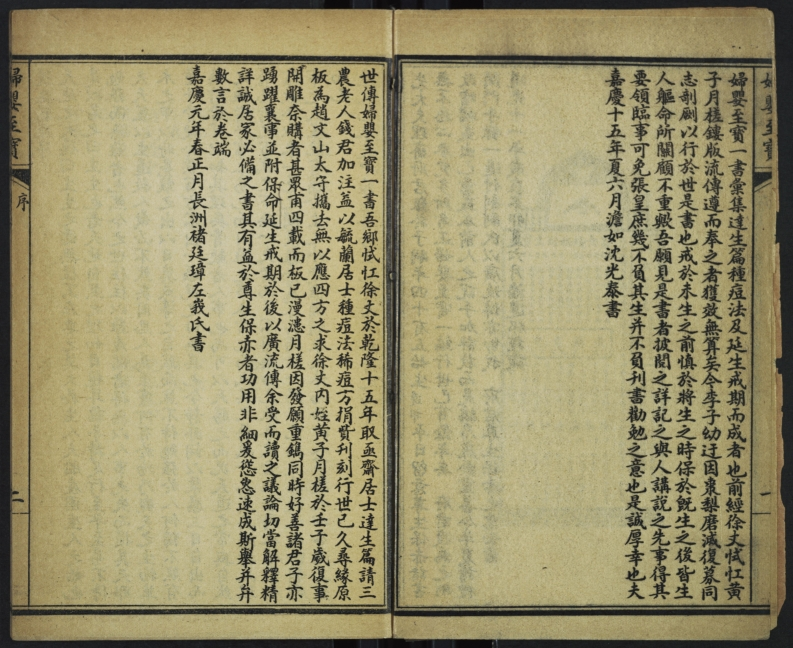 婦嬰至寶一書彙集達生篇種痘法及延生戒期而成者也前經徐丈惏江黃
子月槎鏤版流傳遵而奉之者獲效無算矣今李子幼迂因棗梨磨滅復募同
志剞劂以行於世是書也戒於未生之前慎於將生之時保於既生之後皆生
人軀命所關顧不重歟吾願見是書者披閱之詳記之與人講說之先事得其
要領臨事可免張皇庶幾不負其生并不負刊書勸勉之意也是誠厚幸也夫
嘉慶十五年夏六月澹如沈光泰書
世傳婦嬰至寶一書吾鄉惏江徐丈於乾隆十五年取亟齋居士達生篇請三
農老人錢君加注益以毓蘭居士種痘法稀痘方捐貲刊刻行世已久尋緣原
板為趙文山太守攜去無以應四方之求徐丈內姪黃子月槎於壬子歲復事
開雕奈購者甚眾甫四載而板已漫漶月槎因發願重鐫同時好善諸君子亦
踴躍襄事並附保命延生戒期於後以廣流傳余受而讀之議論切當解釋精
詳誠居家必備之書其有益於尊生保赤者功用非細爰慫恿速成斯舉并弁
數言於卷端
嘉慶元年春正月長洲褚廷璋左峩氏書
婦嬰至寶
序
二